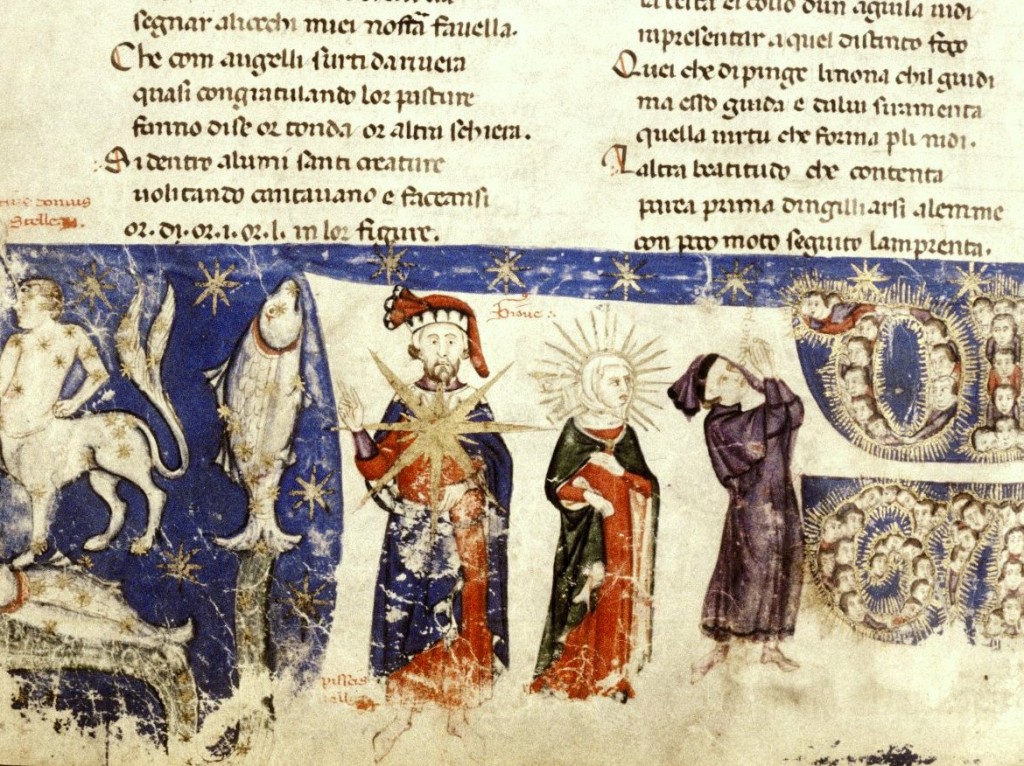 segnar alicechi miei nostra fauella.
Che com augelli surti dariuera
quasi congratulando lor pasture
fanno dise or tonda or altra schiera.
Si dentro alumi santi creature
uolitando cantauano e faceansi
or. di. or. i. or. l. in lor figure.
domus
Stelle
la testa el collo dun aguila uidi
inpresentar aquel distinto foco
Quei che dipinge linona chil guidi
ma esso guida e dalui siramenta
quella uirtu che forma pli nidi.
Laltra beatitudo che contenta
parea prima dingilliarsi alemme
con poco moto seguito lamprenta.
Gioue
pisscis